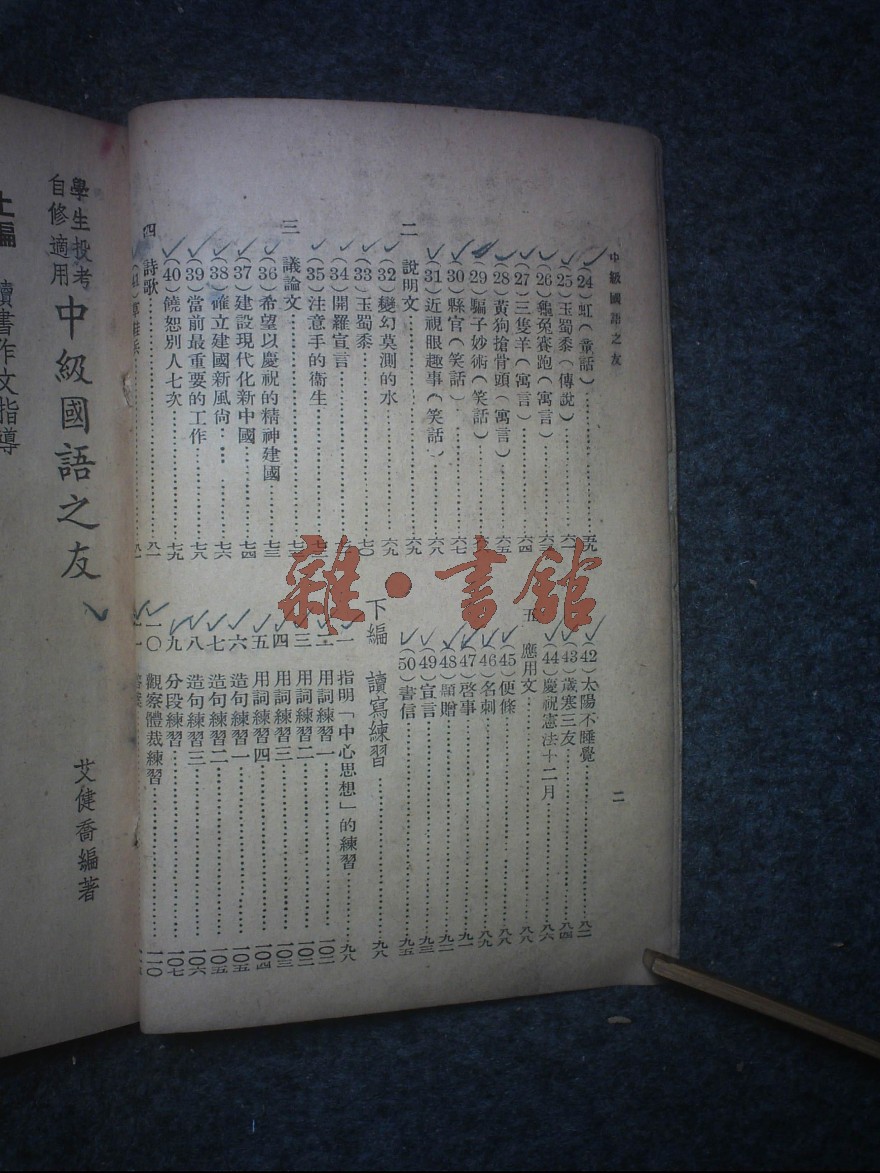 中級國語之友
(24)虹(童話)……五九
(25)玉蜀黍(傳說)……六一
(26)龜兔賽跑(寓言)……
(27)三隻羊(寓言)……六四
(28)黃狗搶骨頭(寓言)……六五
(29)騙子妙術(笑話)……
(30)縣官(笑話)……六七
(31)近視眼趣事(笑話)……六八
二 說明文……六九
(32)變幻莫測的水……六九
(33)玉蜀黍……七〇
(34)開羅宣言……
(35)注意手的衞生……
三 議論文……七三
(36)希望以慶祝的精神建國……七三
(37)建設現代化新中國……七四
(38)確立建國新風尚……七六
(39)當前最重要的工作……七八
(40)饒恕別人七次……七九
四 詩歌……八一
二
(42)太陽不睡覺……八二
(43)歲寒三友……八四
(44)慶祝憲法十二月……八六
五 應用文……八八
(45)便條……八八
(46)名刺……八九
(47)啓事……九一
(48)題贈……
(49)宣言……九三
(50)書信……九五
下編 讀寫練習……九八
一 指明「中心思想」的練習……九八
二 用詞練習一……一〇二
三 用詞練習二……一〇二
四 用詞練習三……一〇三
五 用詞練習四……一〇四
六 造句練習一……一〇五
七 造句練習二……一〇五
八 造句練習三……一〇六
九 分段練習……一〇七
一〇 觀察體裁練習……一一〇
學生投考
自修適用
中級國語之友
艾健喬編著
上編 讀書作文指導
雜·書館